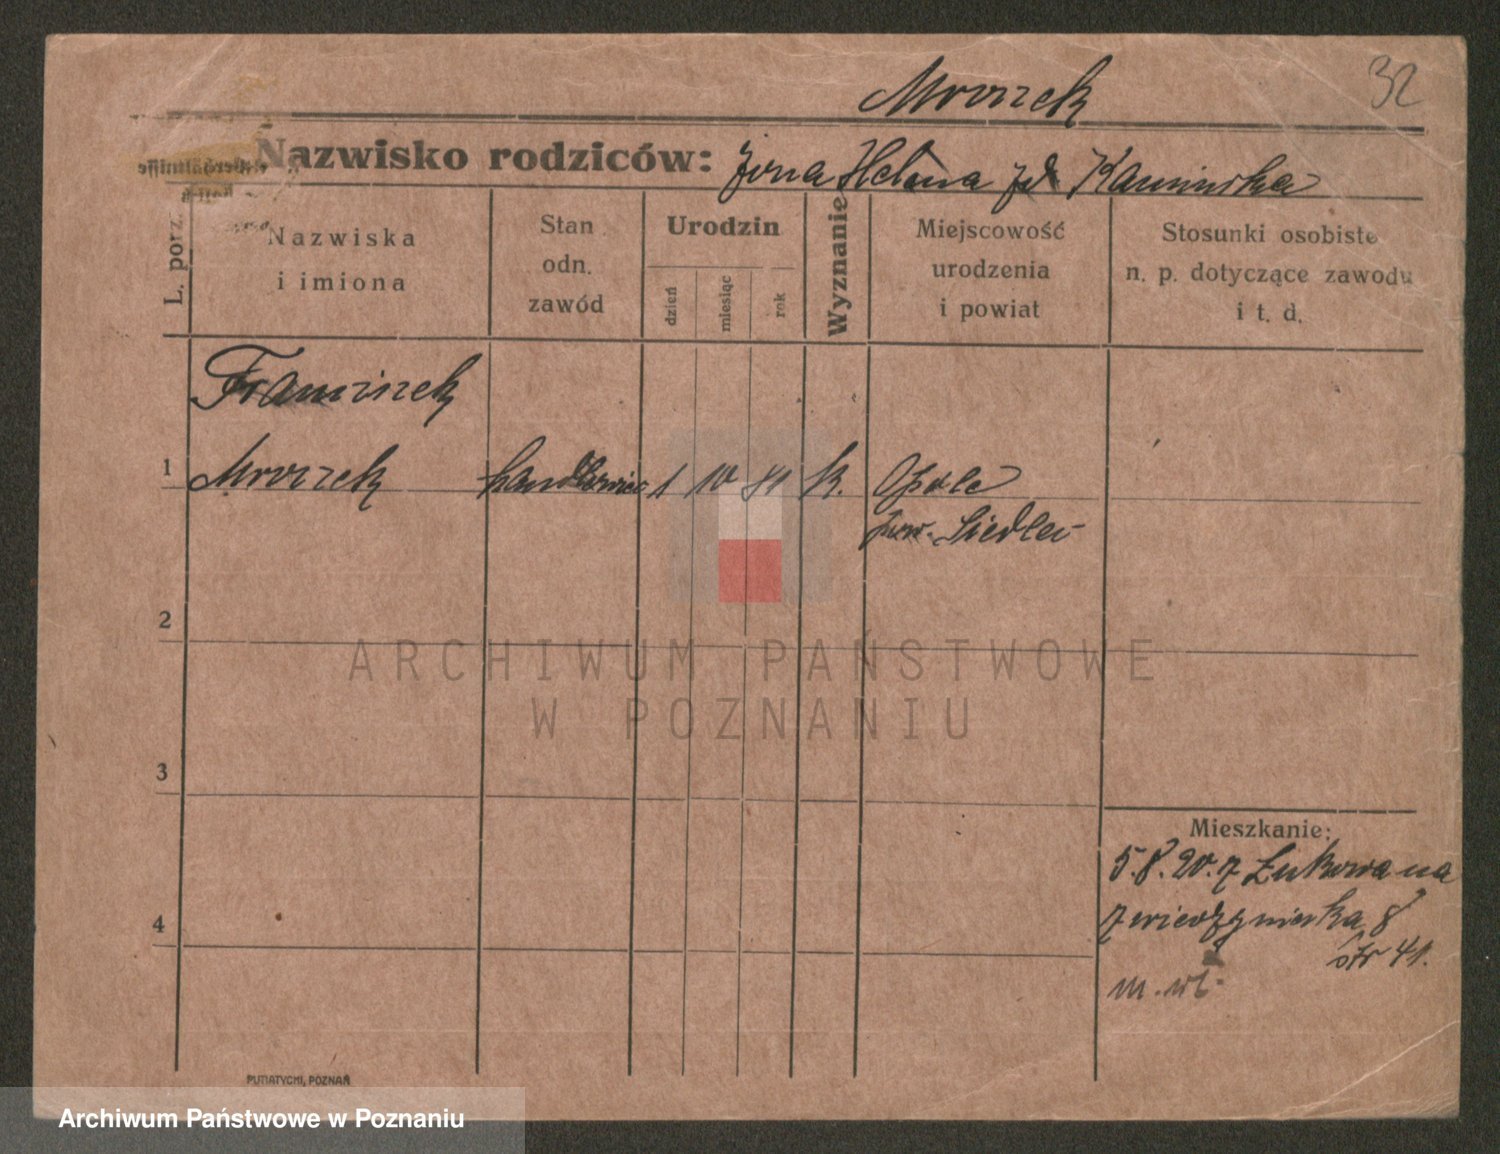 32
Mrozek
Nazwisko rodziców: żona Helena zd Kamińska
L. porz.
Nazwiska
i imiona
Stan
odn.
zawód
Urodzin
dzień
miesiąc
rok
Wyznanie
Miejscowość
urodzenia
i powiat
Stosunki osobiste
n. p. dotyczące zawodu
i t. d.
Franciszek
1 Mrozek handlowiec 1 10 81 k. Opole
pow. Siedlce
2
ARCHIWUM PAŃSTWOWE
W POZNANIU
3
Mieszkanie:
5.8.20. z Łukowa na
8
4
str 41.
m. wł.
PUTIATYCKI, POZNAŃ
Archiwum Państwowe w Poznaniu